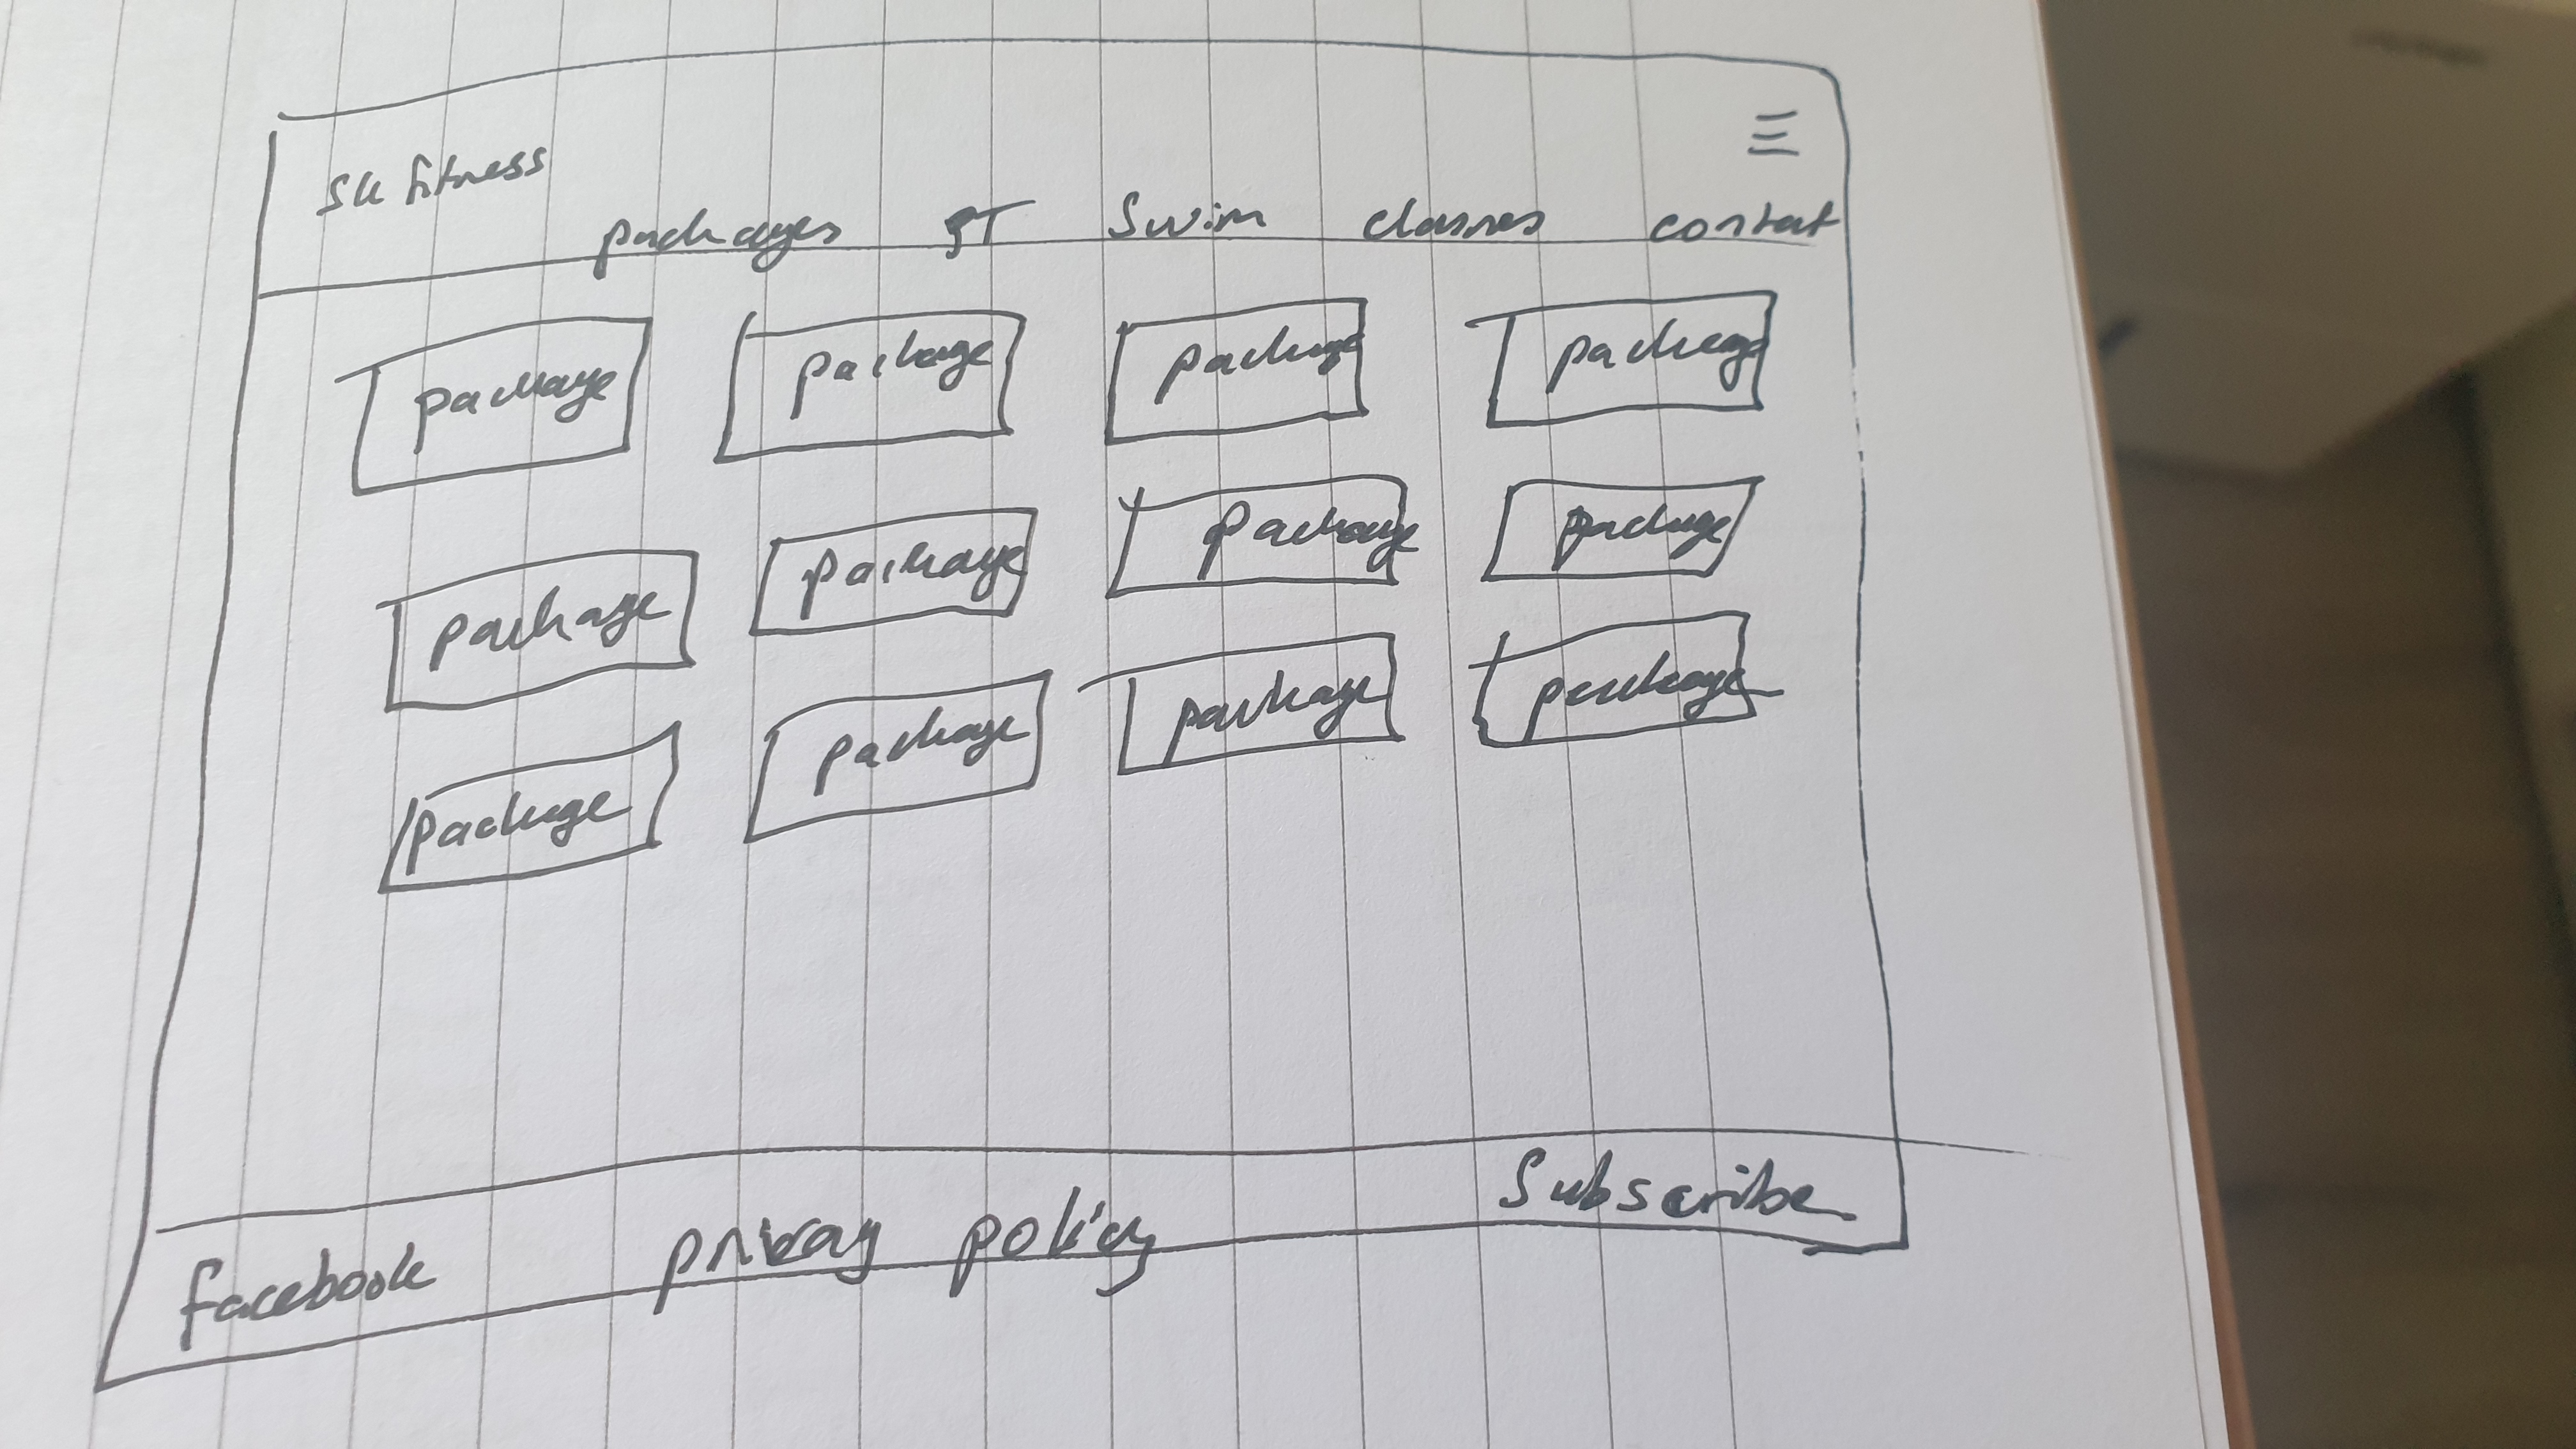 SK fitness
packages PT Swim classes contact
package package package package
package package package package
package package package package
facebook privacy policy Subscribe